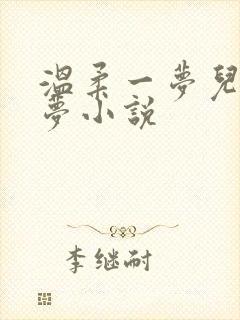 溫柔一夢兒
夢小說
李继耐